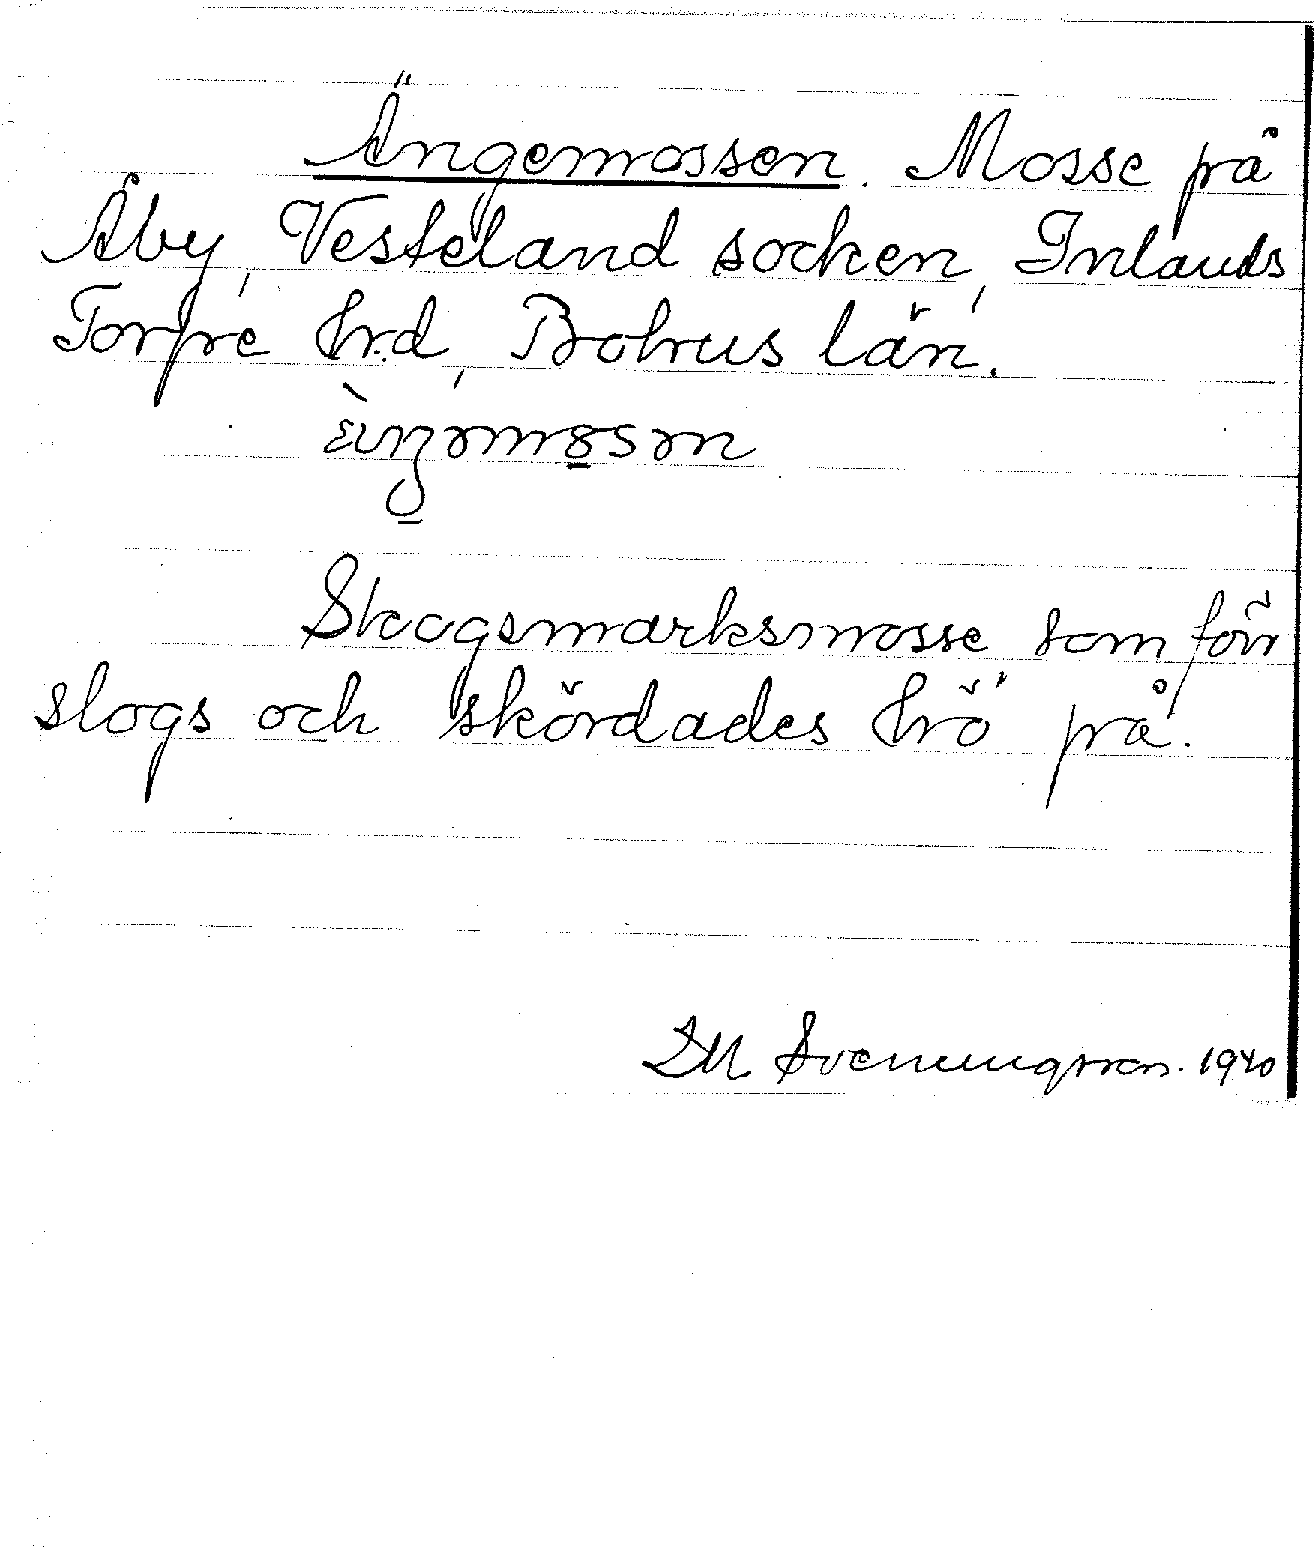 Ängemossen. Mosse på
Åby, Vesteland socken, Inlands
Torpe hrd, Bohus län.
Skogsmarksmosse som förr
slogs och skördades hö på.
Svenningsson. 1940